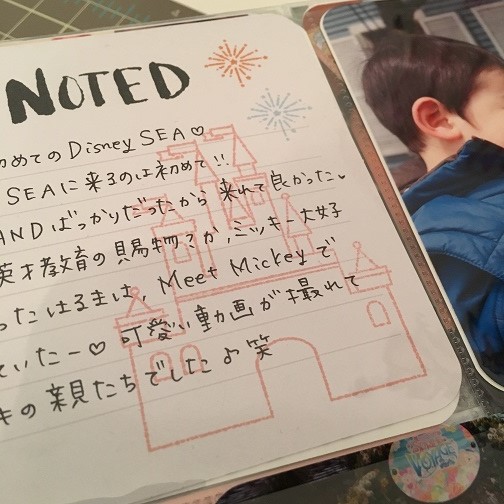 NOTED
初めてのDisney SEA♡
SEAに来るのは初めて!!
ANDばっかりだったから来れて良かった♥
英才教育の賜物?か、ミッキー大好
ったはるまは、Meet Mickeyで
ていたー♡可愛い動画が撮れて
キの親たちでした♪笑
VOYAGE